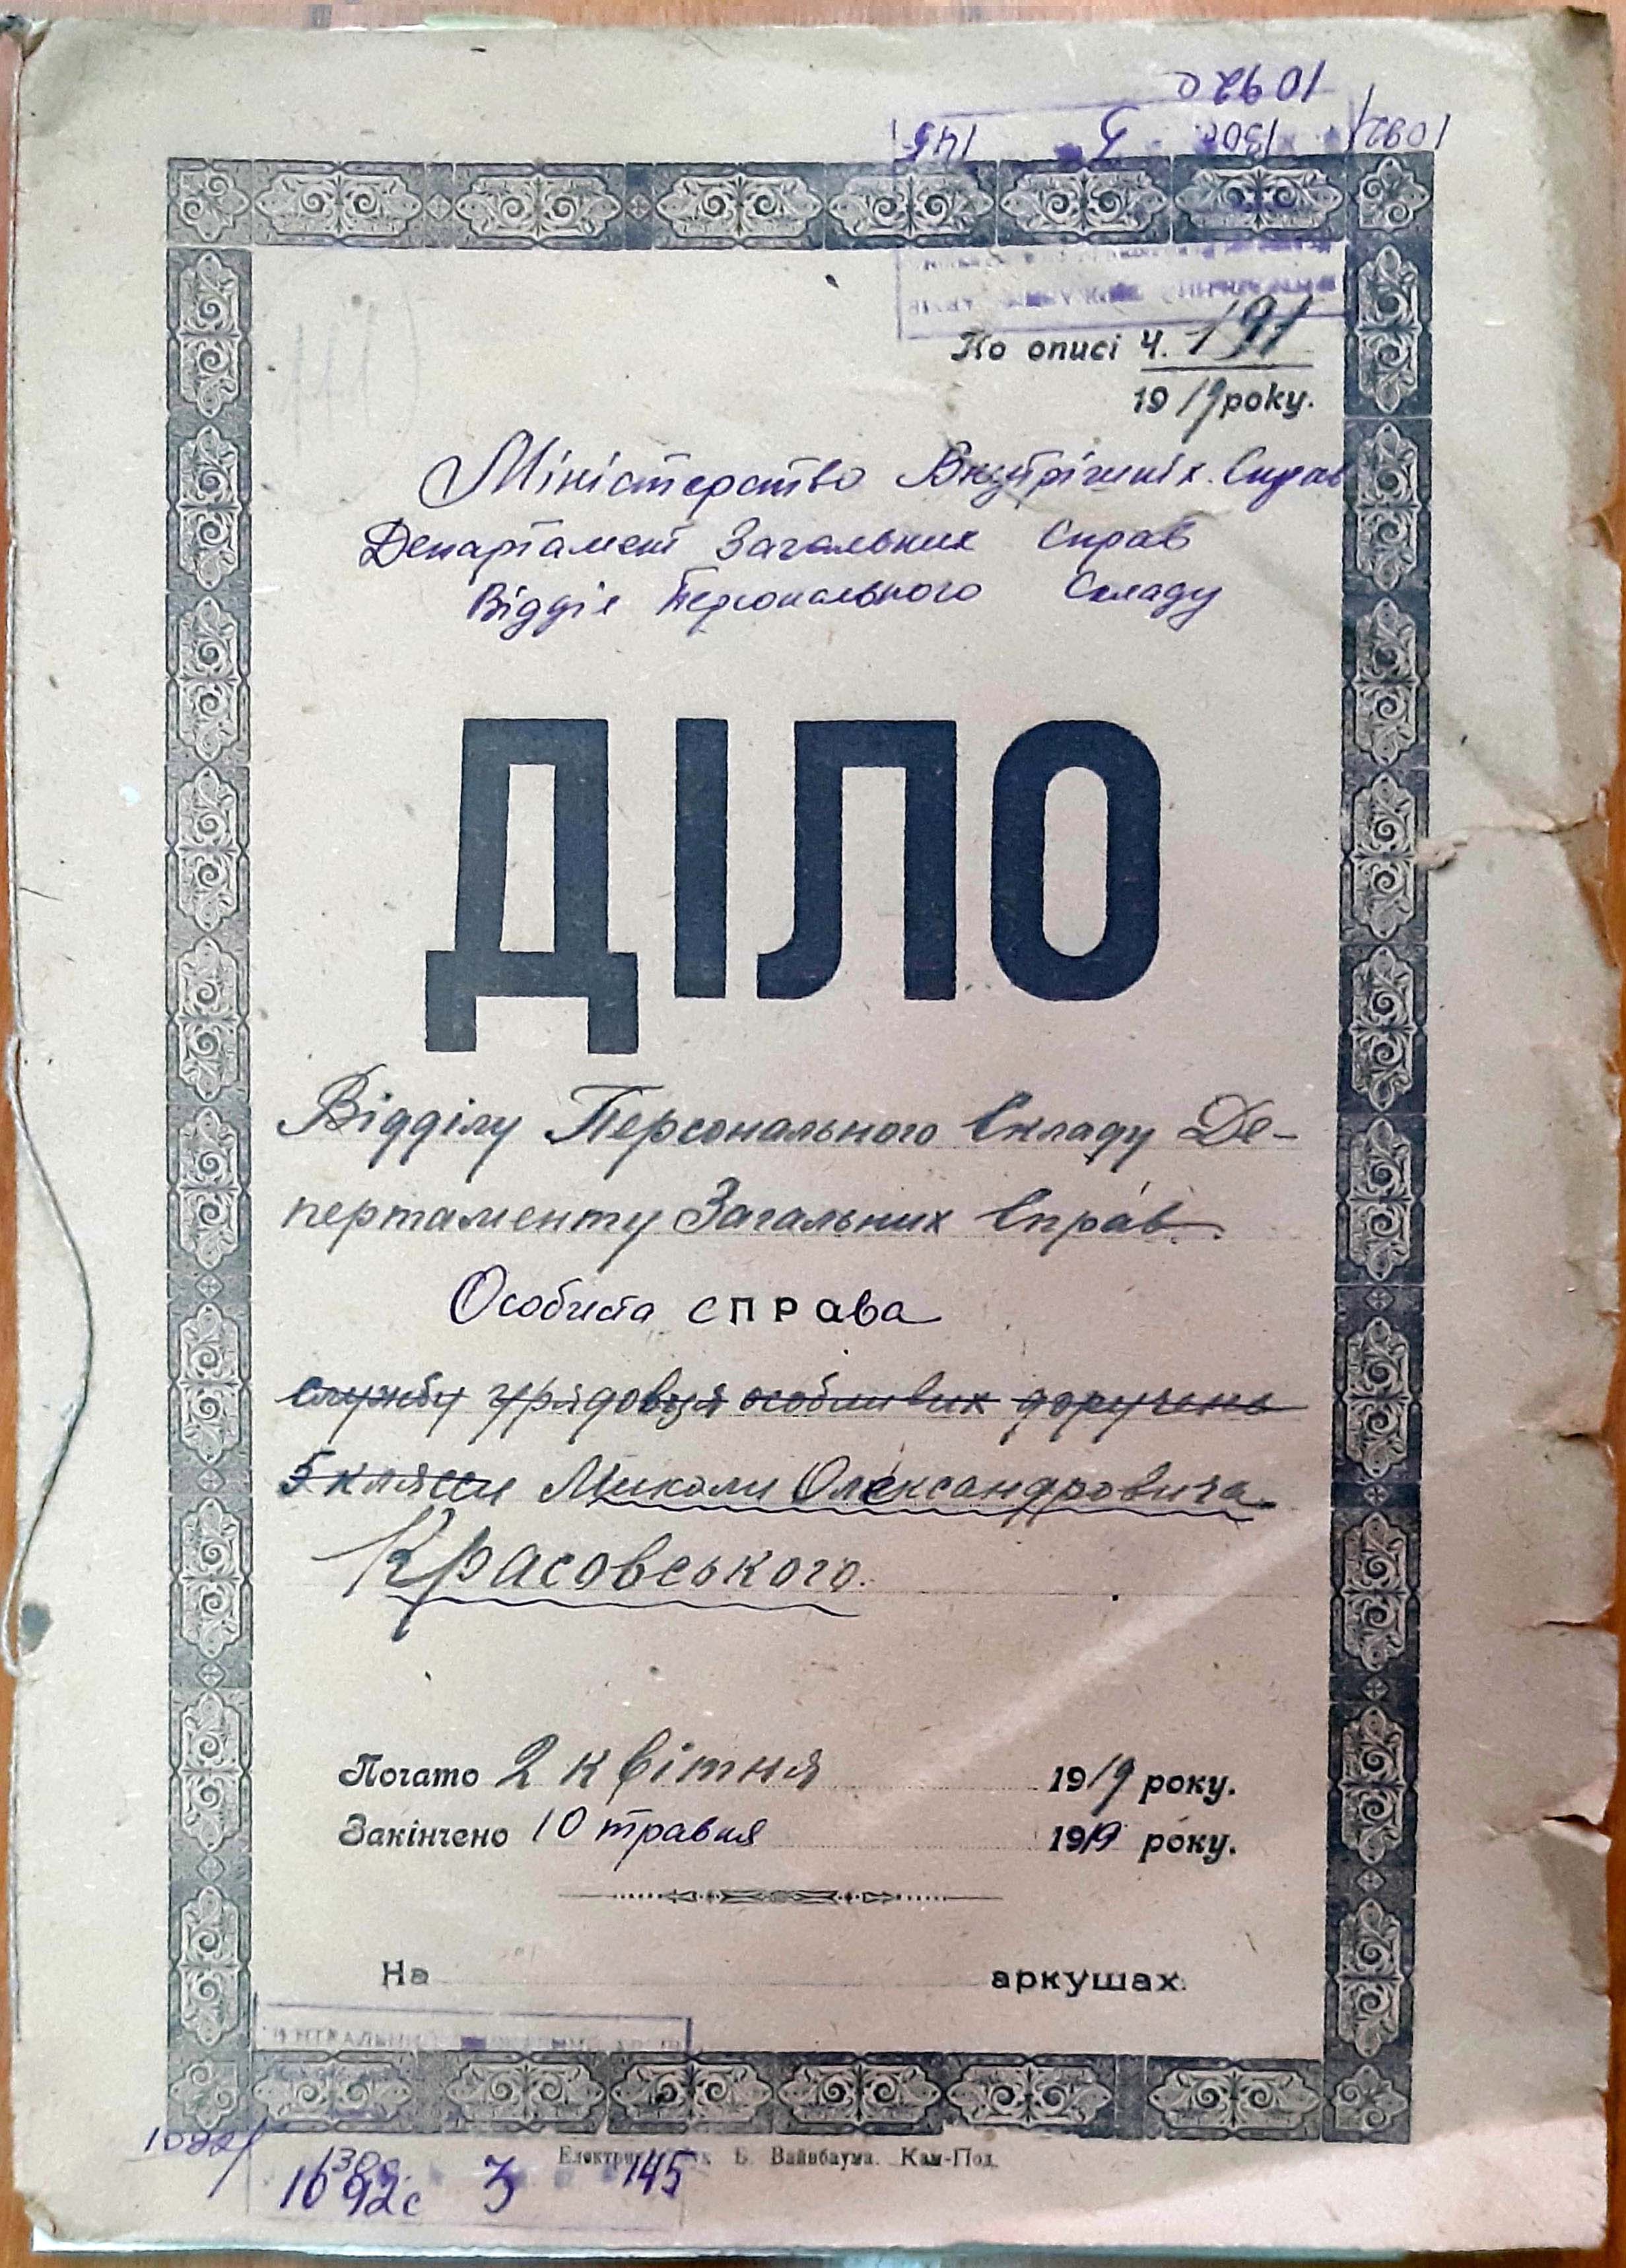 1092с
1092/ 130с 3 145
По описі ч. 191
1919 року.
Міністерство Внутрішніх Справ
Департамент Загальних Справ
Відділ Персонального Складу
ДІЛО
Відділу Персонального Складу Де-
пертаменту Загальних Справ.
Особиста справа
службу урядовця особливих доручень
5 кляси Миколи Олександровича
Красовського.
Почато 2 квітня 1919 року.
Закінчено 10 травня 1919 року.
На аркушах.
Б. Вайнбаума. Кам-Под.
1092с 3 145